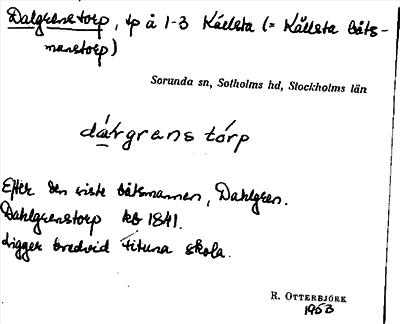 Dalgrenstorp, tp å 1-3 Källsta (= Källsta båts-
manstorp)
Sorunda sn, Sotholms hd, Stockholms län
dárgrans tórp
Efter den siste båtsmannen, Dahlgren.
Dahlgrenstorp kb 1841.
Ligger bredvid Fituna skola.
R. OTTERBJÖRK
1953